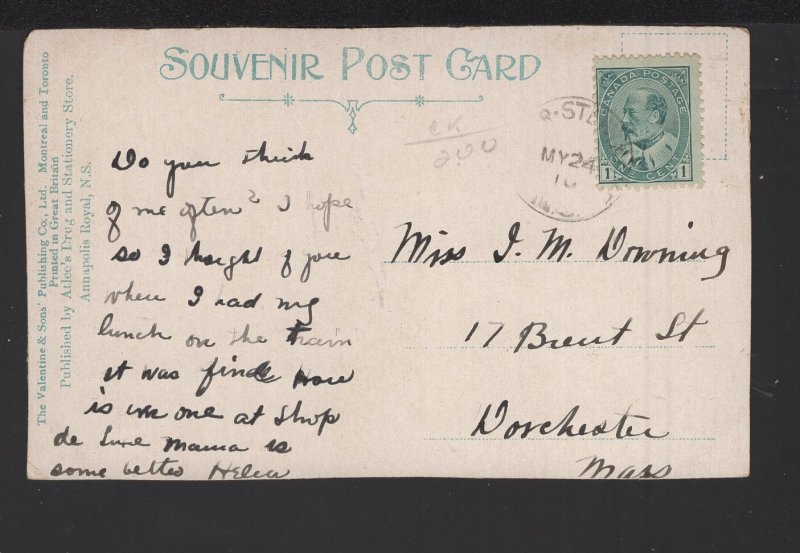 SOUVENIR POST CARD
The Valentine & Sons' Publishing Co., Ltd. Montreal and Toronto
Printed in Great Britain
Published by Atlee's Drug and Stationery Store.
Annapolis Royal, N.S.
CANADA POSTAGE
1 ONE CENT 1
MY 24
10
CK
200
Do you think
of me often? I hope
so I thought of you
when I had my
lunch on the train
it was fine How
is every one at Shop
de Luxe Mama is
some better Helen
Miss I. M. Downing
17 Brent St
Dorchester
Mass